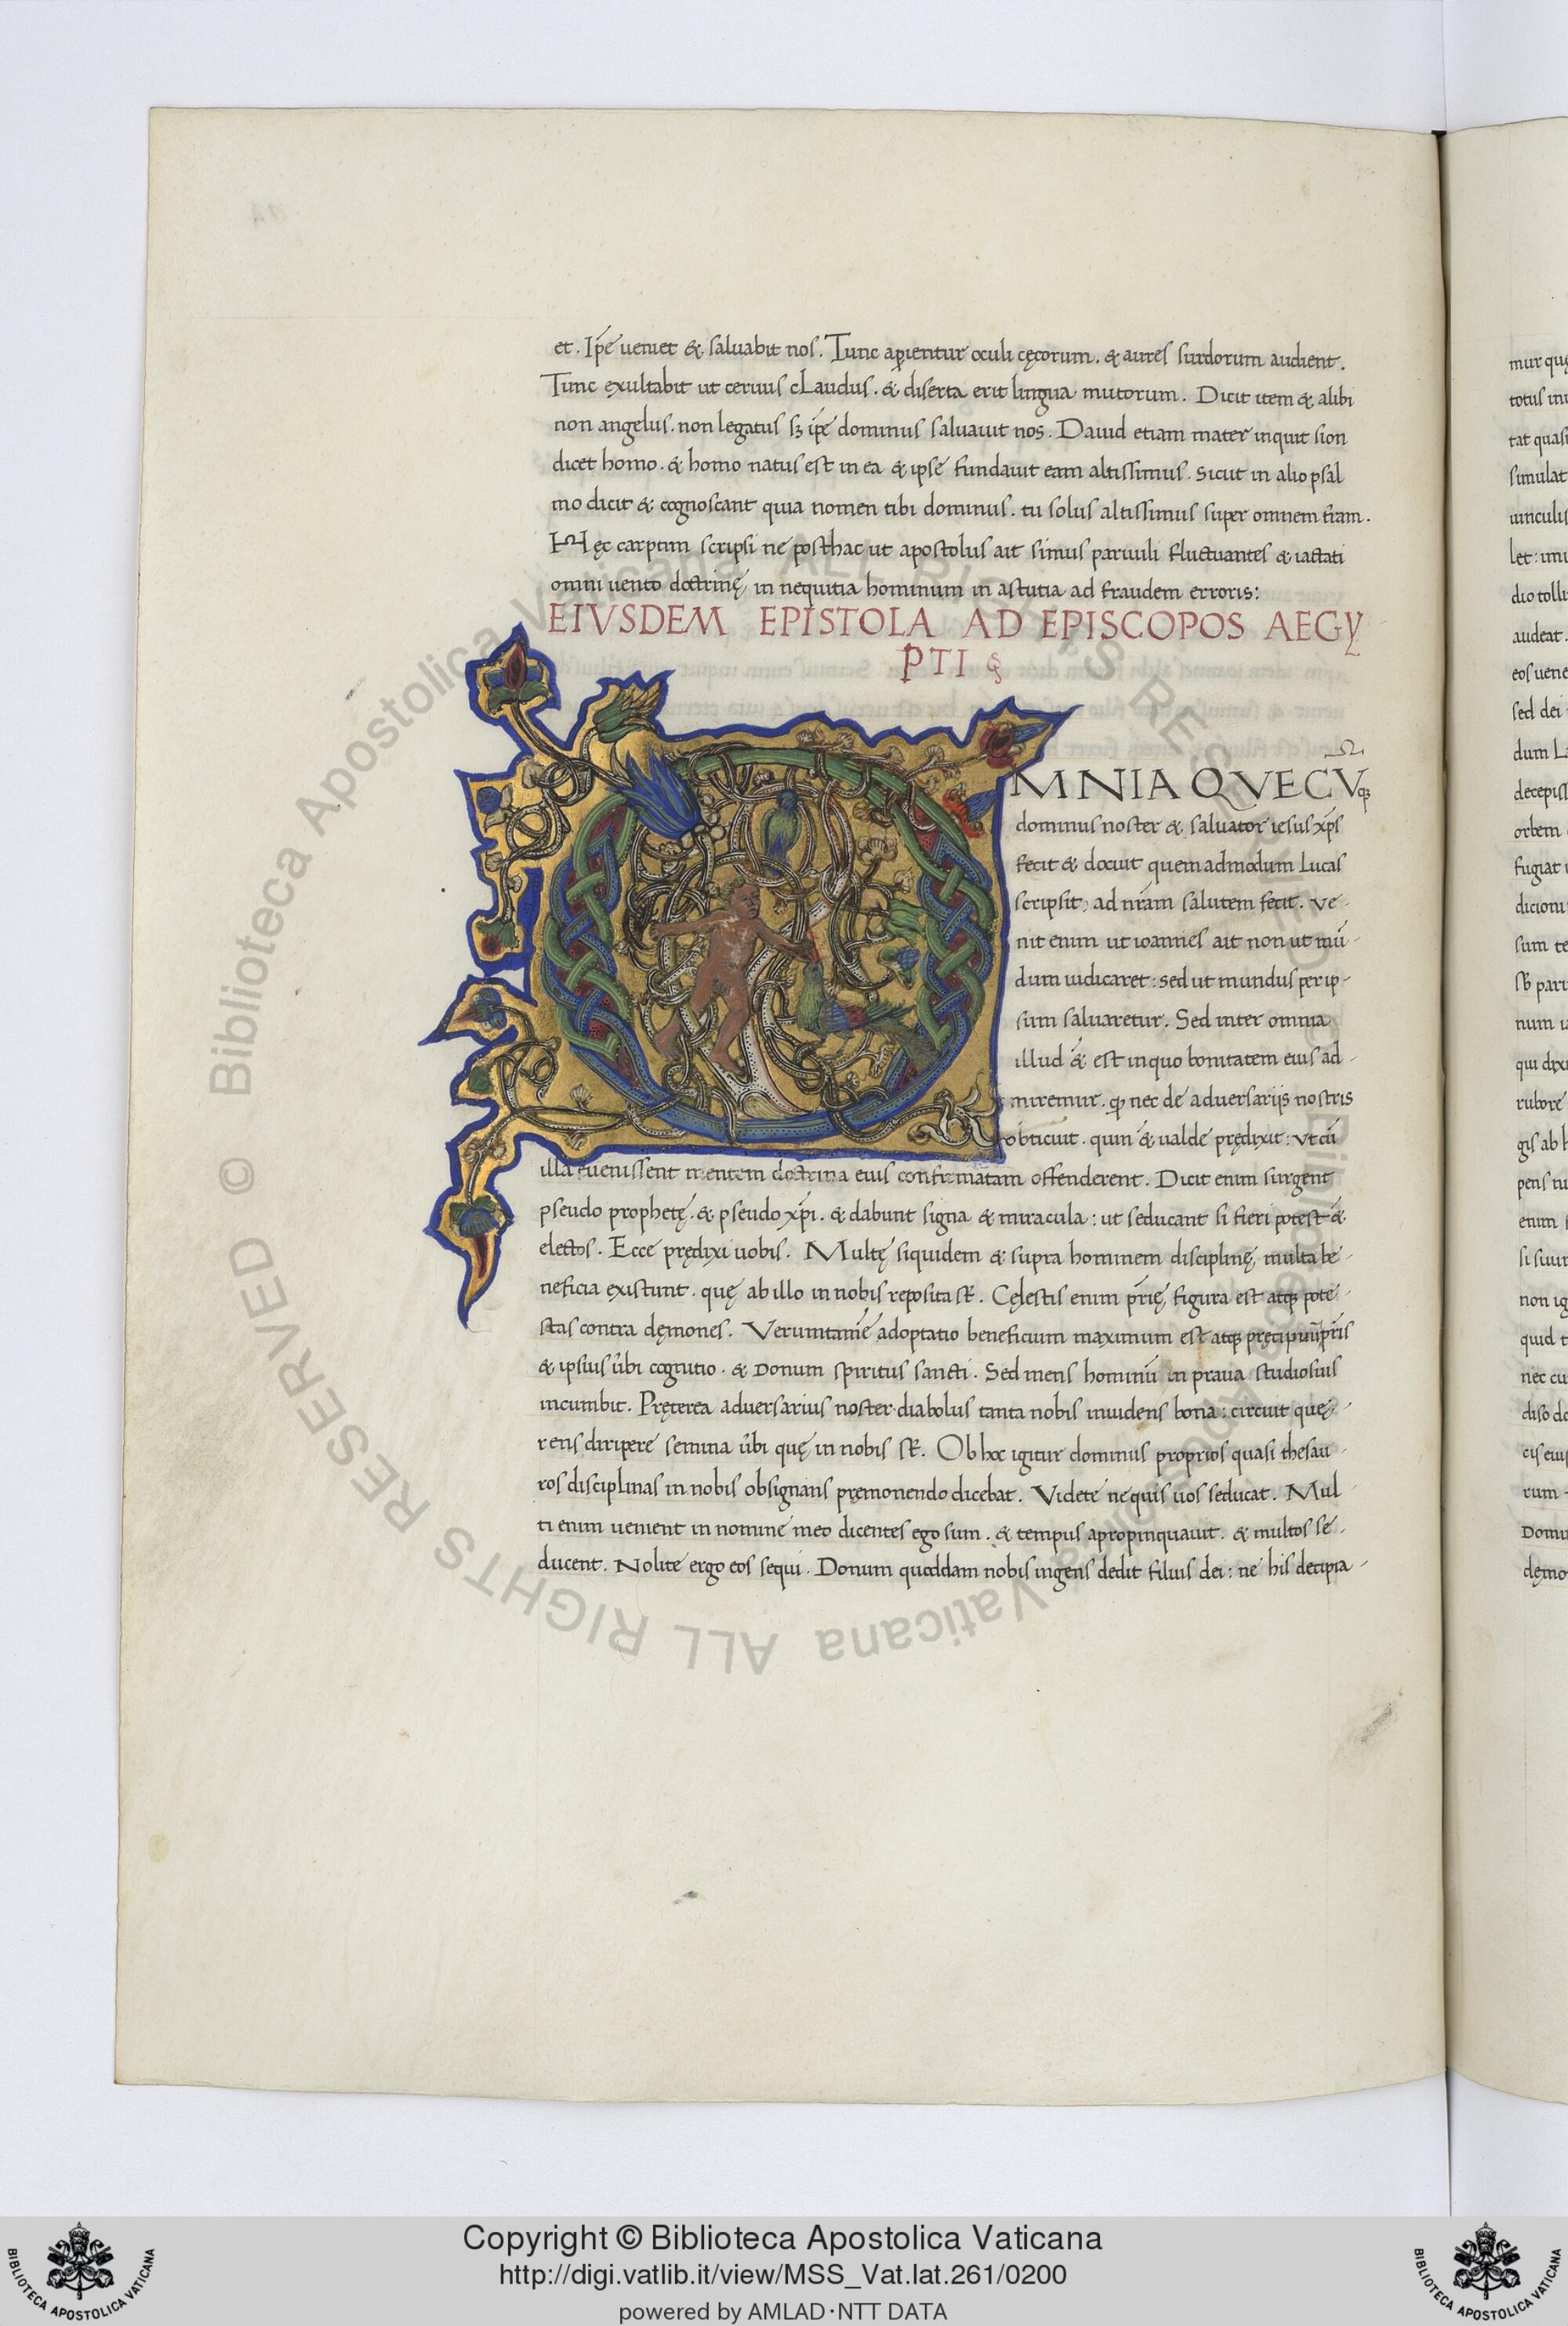 et. Ip̄e ueniet & saluabit nos. Tunc aperientur oculi cęcorum. & aures surdorum audient.
Tunc exultabit ut ceruus cLaudus. & diserta erit lingua mutorum. Dicit item & alibi
non angelus. non legatus sꝫ ip̄e dominus saluauit nos. Dauid etiam mater inquit sion
dicet homo. & homo natus est in ea & ipse fundauit eam altissimus. sicut in alio psal
mo dicit & cognoscant quia nomen tibi dominus. tu solus altissimus super omnem t̄ram.
Hęc carptim scripsi ne posthac ut apostolus ait simus paruuli fluctuantes & iactati
omni uento doctrinę in nequitia hominum in astutia ad fraudem erroris:
EIVSDEM EPISTOLA AD EPISCOPOS AEGY
PTI
OMNIA QVECVꝫ
dominus noster & saluator iesus xp̄s
fecit & docuit quemadmodum Lucas
scripsit, ad nr̄am salutem fecit. Ve-
nit enim ut ioannes ait non ut mū-
dum iudicaret: sed ut mundus per ip-
sum saluaretur. Sed inter omnia
illud & est in quo bonitatem eius ad-
miremur. ꝙ nec de aduersarijs nostris
obticuit. quin & ualde prędixit: ut cū
illa euenissent mentem doctrina eius confirmatam offenderent. Dicit enim surgent
pseudo prophetę. & pseudo xp̄i. & dabunt signa & miracula: ut seducant si fieri potest &
electos. Ecce prędixi uobis. Multę siquidem & supra hominem disciplinę, multa be-
neficia existunt. quę ab illo in nobis reposita st̄. Cęlestis enim p̄rię figura est atqꝫ pote-
stas contra dęmones. Verumtamē adoptatio beneficium maximum est atqꝫ precipuū p̄ris
& ipsius ūbi cognitio. & Donum spiritus sancti. Sed mens hominū in praua studiosius
incumbit. Pręterea aduersarius noster diabolus tanta nobis inuidens bona: circuit quę-
rens diripere semina ūbi quę in nobis st̄. Ob hoc igitur dominus proprios quasi thesau-
ros disciplinas in nobis obsignans pręmonendo dicebat. Videte ne quis uos seducat. Mul
ti enim uenient in nomine meo dicentes ego sum. & tempus apropinquauit. & multos se-
ducent. Nolite ergo eos sequi. Donum quoddam nobis ingens dedit filius dei: ne his decipia-
mur quę
totus
tat quasi
simulat
uinculis
let:
dio
audeat.
eos
sed dei
dum
orbem
fugiat
sum
num
qui
gis ab
enim
quid
cis
rum
© Biblioteca Apostolica Vaticana ALL RIGHTS RESERVED
© Biblioteca Apostolica Vaticana ALL RIGHTS RESERVED
Copyright © Biblioteca Apostolica Vaticana
http://digi.vatlib.it/view/MSS_Vat.lat.261/0200
powered by AMLAD·NTT DATA
BIBLIOTECA APOSTOLICA VATICANA
BIBLIOTECA APOSTOLICA VATICANA